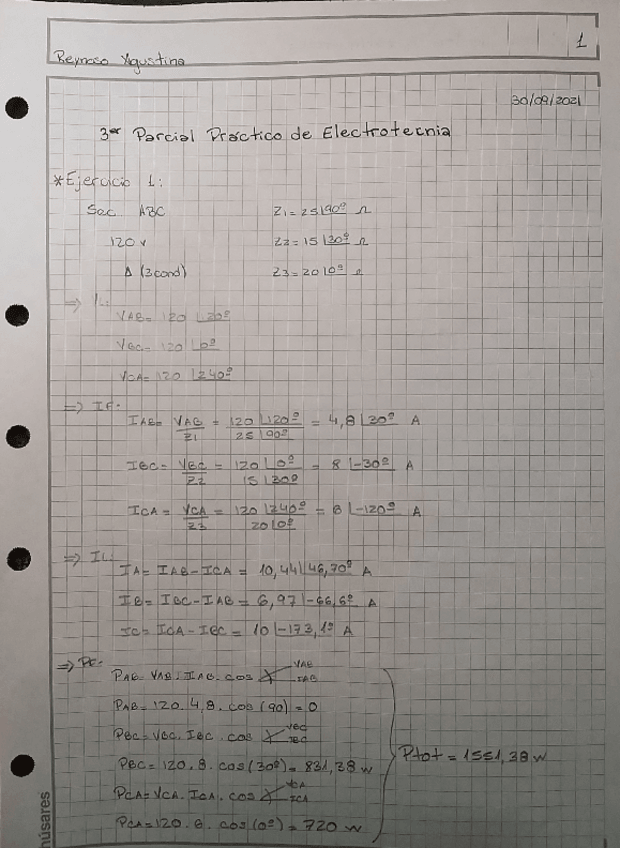 1
Reynoso Agustina
30/09/2021
3er Parcial Práctico de Electrotecnia
*Ejercicio 1:
Sec ABC Z1 = 25∠90º Ω
120 v Z2 = 15∠30º Ω
Δ (3 cond) Z3 = 20∠0º Ω
⇒ IL:
VAB = 120∠120º
VBC = 120∠0º
VCA = 120∠240º
⇒ IF:
IAB = VAB/Z1 = 120∠120º/25∠90º = 4,8∠30º A
IBC = VBC/Z2 = 120∠0º/15∠30º = 8∠-30º A
ICA = VCA/Z3 = 120∠240º/20∠0º = 6∠-120º A
⇒ IL:
IA = IAB - ICA = 10,44∠46,70º A
IB = IBC - IAB = 6,97∠-66,6º A
IC = ICA - IBC = 10∠-173,1º A
⇒ PC:
PAB = VAB . IAB . cos ∢ VAB IAB
PAB = 120 . 4,8 . cos (90) = 0
PBC = VBC . IBC . cos ∢ VBC IBC
PBC = 120 . 8 . cos (30º) = 831,38 w
Ptot = 1551,38 w
PCA = VCA . ICA . cos ∢ VCA ICA
PCA = 120 . 6 . cos (0º) = 720 w
húsares